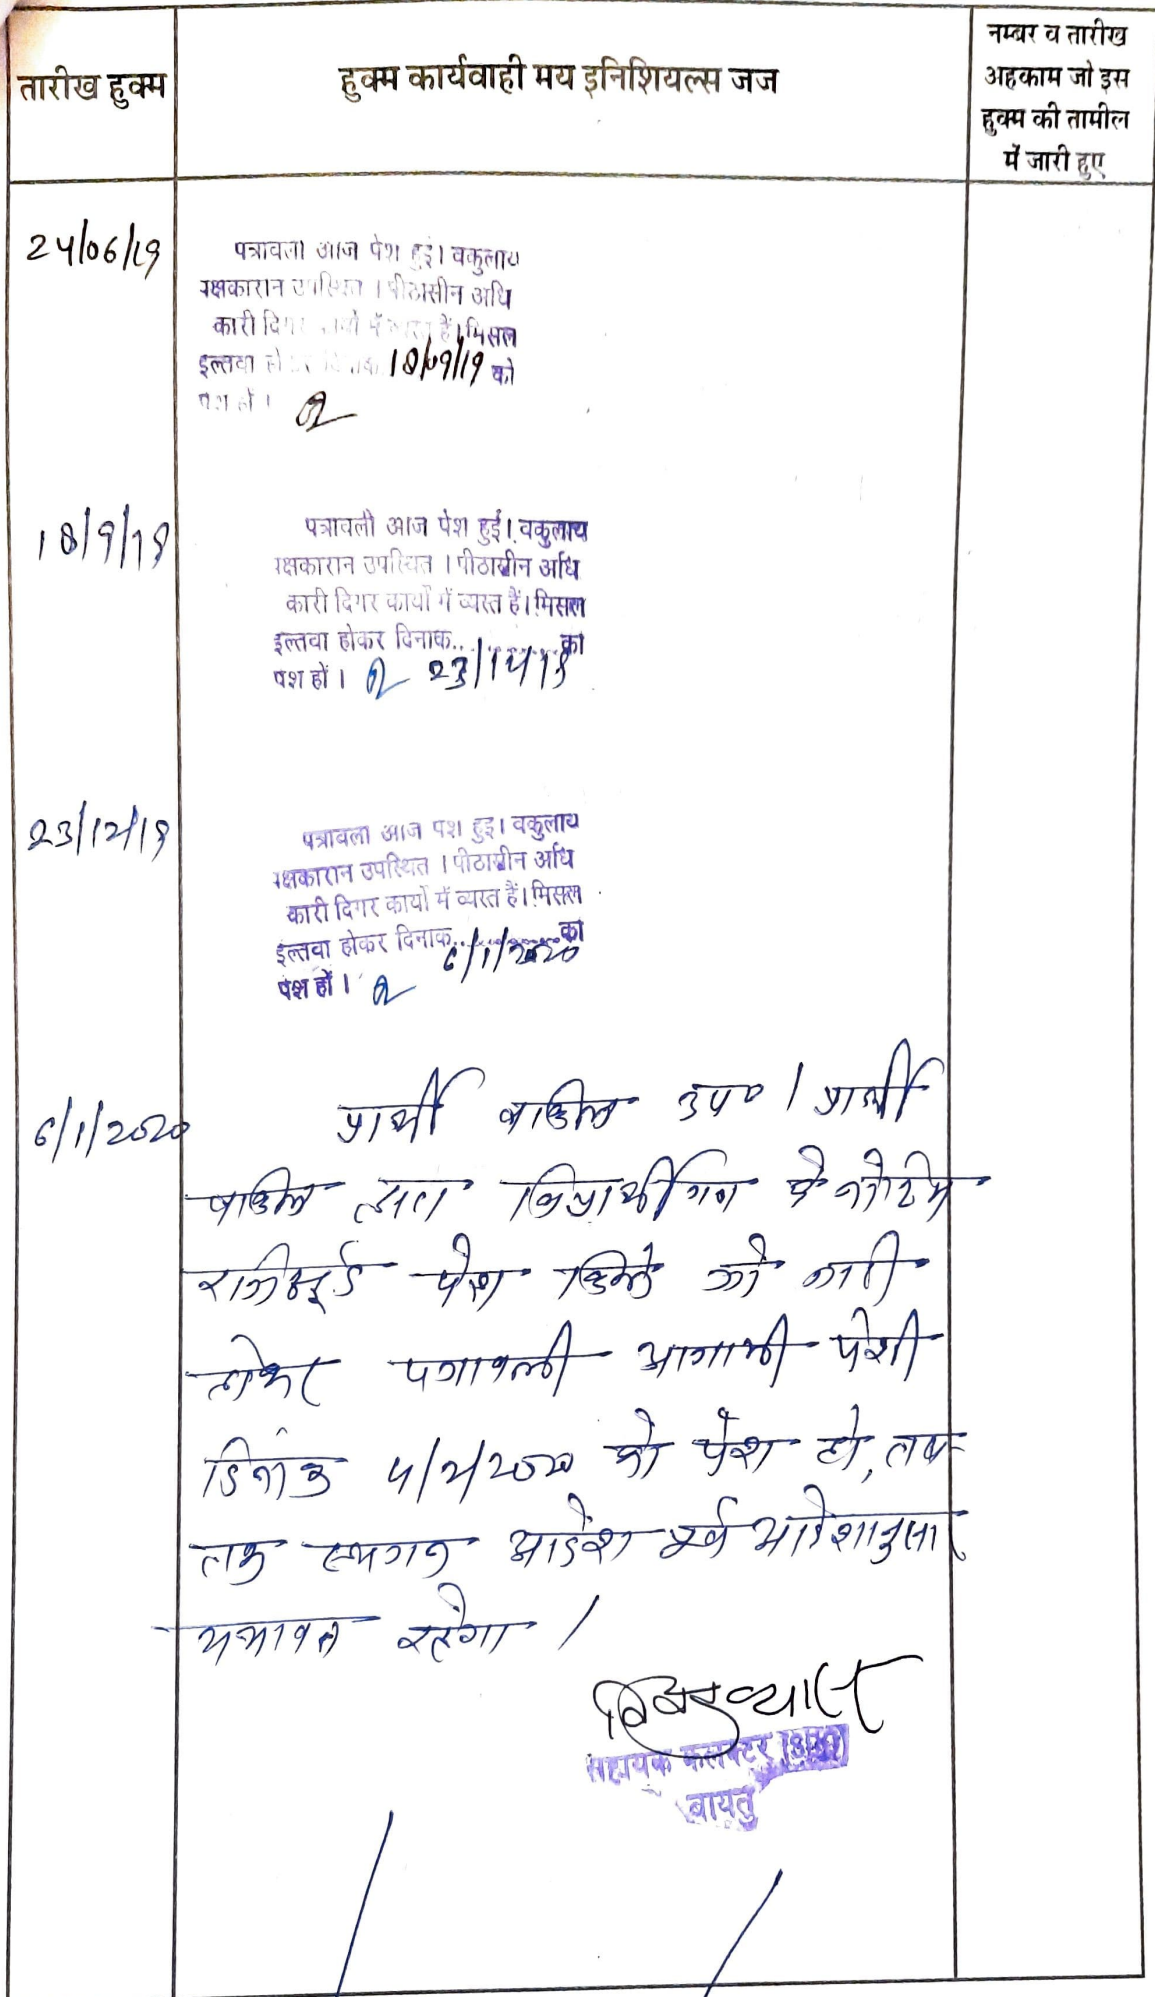 तारीख हुक्म
हुक्म कार्यवाही मय इनिशियल्स जज
नम्बर व तारीख
अहकाम जो इस
हुक्म की तामील
में जारी हुए
24/06/19
पत्रावली आज पेश हुई। वकुलाय
पक्षकारान उपस्थित । पीठासीन अधि
कारी दिगर कार्यो में व्यस्त हैं। मिसल
इल्तवा होकर दिनाक 18/09/19 को
पेश हों ।
18/9/19
पत्रावली आज पेश हुई। वकुलाय
पक्षकारान उपस्थित । पीठासीन अधि
कारी दिगर कार्यो में व्यस्त हैं। मिसल
इल्तवा होकर दिनाक..........को
पेश हों । 23/12/19
23/12/19
पत्रावली आज पेश हुई। वकुलाय
पक्षकारान उपस्थित । पीठासीन अधि
कारी दिगर कार्यो में व्यस्त हैं। मिसल
इल्तवा होकर दिनाक..........को
6/1/2020
पेश हों ।
6/1/2020
प्रार्थी वकील उप० । प्रार्थी
वकील द्वारा विप्रार्थीगण के नोटिस
रजिस्टर्ड पेश किये जो जारी
होकर पत्रावली आगामी पेशी
दिनांक 4/2/2020 को पेश हो, तब
तक स्थगन आदेश पूर्व आदेशानुसार
यथावत रहेगा ।
सहायक कलक्टर
बायतु